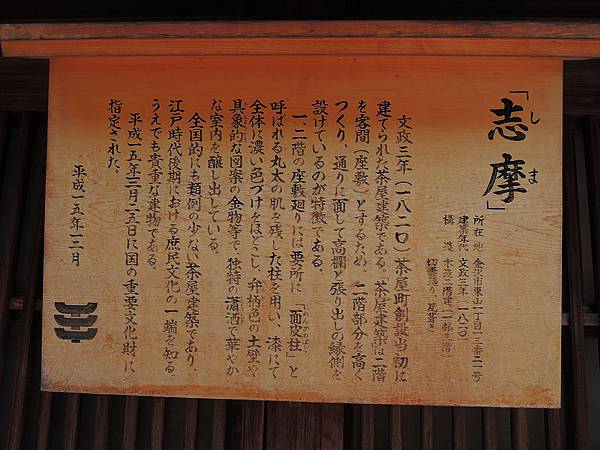 「志摩」
しま
所在地 金沢市東山一丁目一三番二一号
建築年代 文政三年(一八二〇)
構造 木造二階建(一部三階)
切妻造り
文政三年(一八二〇)茶屋町創設当初に
建てられた茶屋建築である。茶屋建築は二階
を客間(座敷)とするため、二階部分を高く
つくり、通りに面して高欄と張り出しの縁側を
設けているのが特徴である。
一、二階の座敷廻りには要所に「面皮柱」と
呼ばれる丸太の肌を残した柱を用い、漆にて
全体に濃い色づけをほどこし、弁柄色の土壁や
具象的な図案の金物等で、独特の瀟洒で華やか
な室内を醸し出している。
全国的にも類例の少ない茶屋建築であり、
江戸時代後期における庶民文化の一端を知る
うえでも貴重な建物である。
平成一五年一二月二五日に国の重要文化財に
指定された。
平成一五年一二月